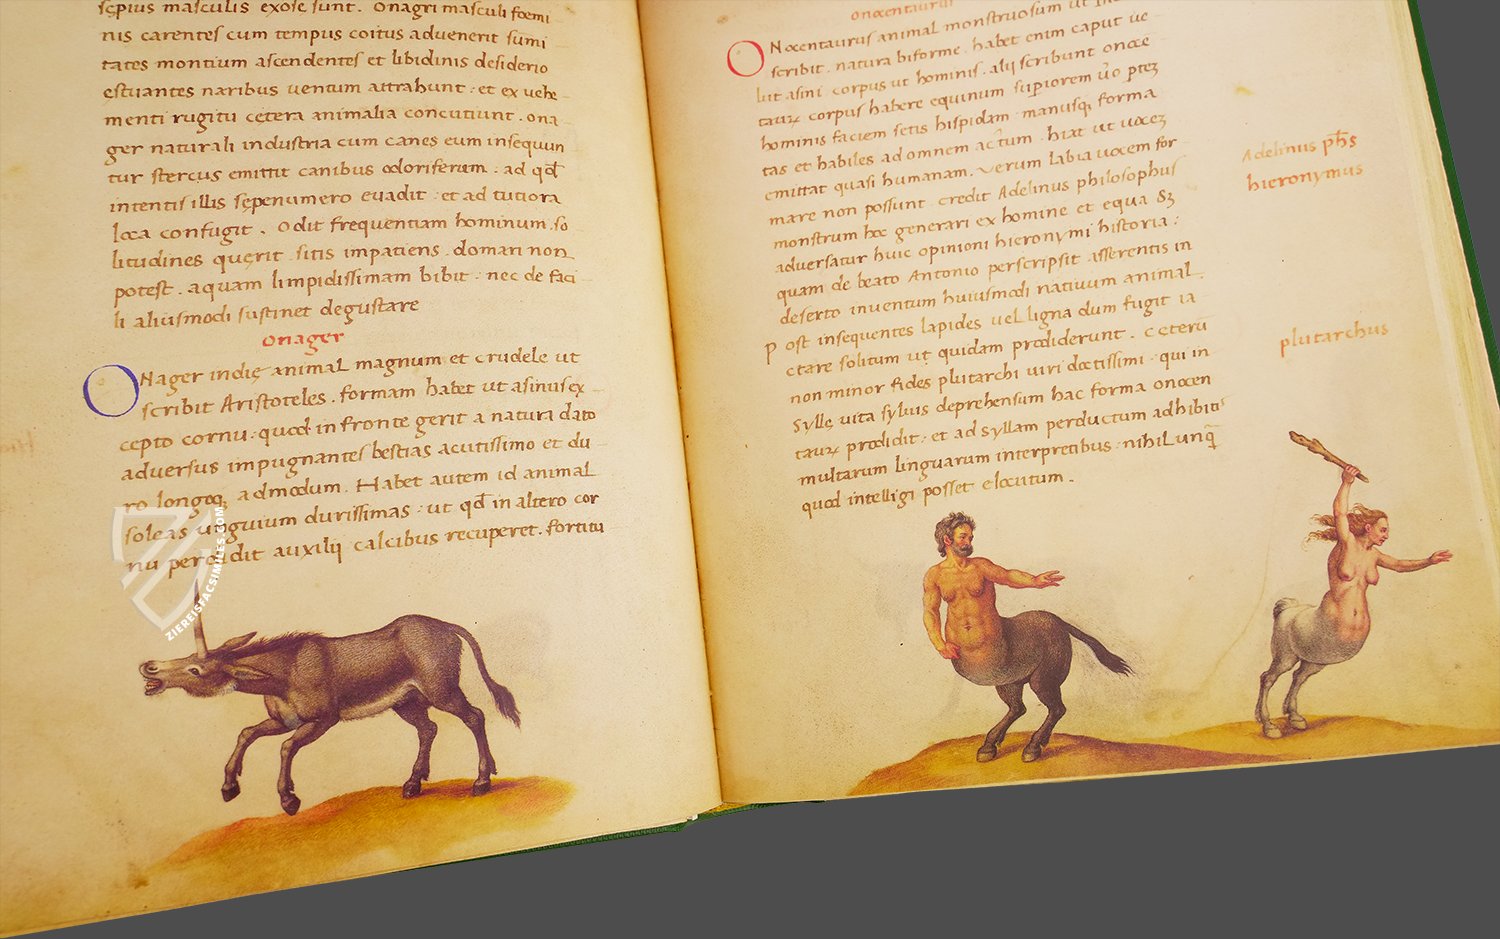 sępius masculis exosę sunt. Onagri masculi foemi
nis carentes cum tempus coitus advenerit sumi
tates montium ascendentes et libidinis desiderio
ęstuantes naribus ventum attrahunt: et ex vehe
menti rugitu cętera animalia concutiunt. ona
ger naturali industria cum canes eum insequun
tur stercus emittit canibus odoriferum: ad qd̄
intentis illis sępenumero evadit: et ad tutiora
loca confugit. Odit frequentiam hominum. so
litudines quęrit. sitis impatiens. domari non
potest. aquam limpidissimam bibit: nec de faci
li aliusmodi sustinet degustare
onager
ONager indię animal magnum et crudele ut
scribit Aristoteles. formam habet ut asinus ex
cepto cornu: quod in fronte gerit a natura dato
adversus impugnantes bestias acutissimo et du
ro longoq; admodum. Habet autem id animal
soleas unguium durissimas: ut qd̄ in altero cor
nu perdidit auxilij calcibus recuperet. fortitu
ZIEREISFACSIMILES.COM
onocentaurus
ONocentaurus animal monstruosum ut
scribit. natura biforme. habet enim caput ve
lut asini. corpus ut hominis. alij scribunt onoce
tauꝝ corpus habere equinum supiorem v̄o ptez
hominis faciem setis hispidam. manusq; forma
tas et habiles ad omnem actum. hiat ut vocez
emittat quasi humanam. verum labia vocem for
mare non possunt. credit Adelinus philosophus
monstrum hoc generari ex homine et equa Sz
adversatur huic opinioni hieronymi historia:
quam de beato Antonio perscripsit asserentis in
deserto inventum huiusmodi nativum animal.
Post insequentes lapides vel ligna dum fugit ia
ctare solitum ut quidam prodiderunt. Cęterū
non minor fides plutarchi viri doctissimi: qui in
Syllę vita sylvis deprehensum hac forma onocen
tauꝝ prodidit: et ad Syllam perductum adhibitis
multarum linguarum interpretibus: nihil unq̄
quod intelligi posset elocutum.
Adelinus phs̄
hieronymus
plutarchus